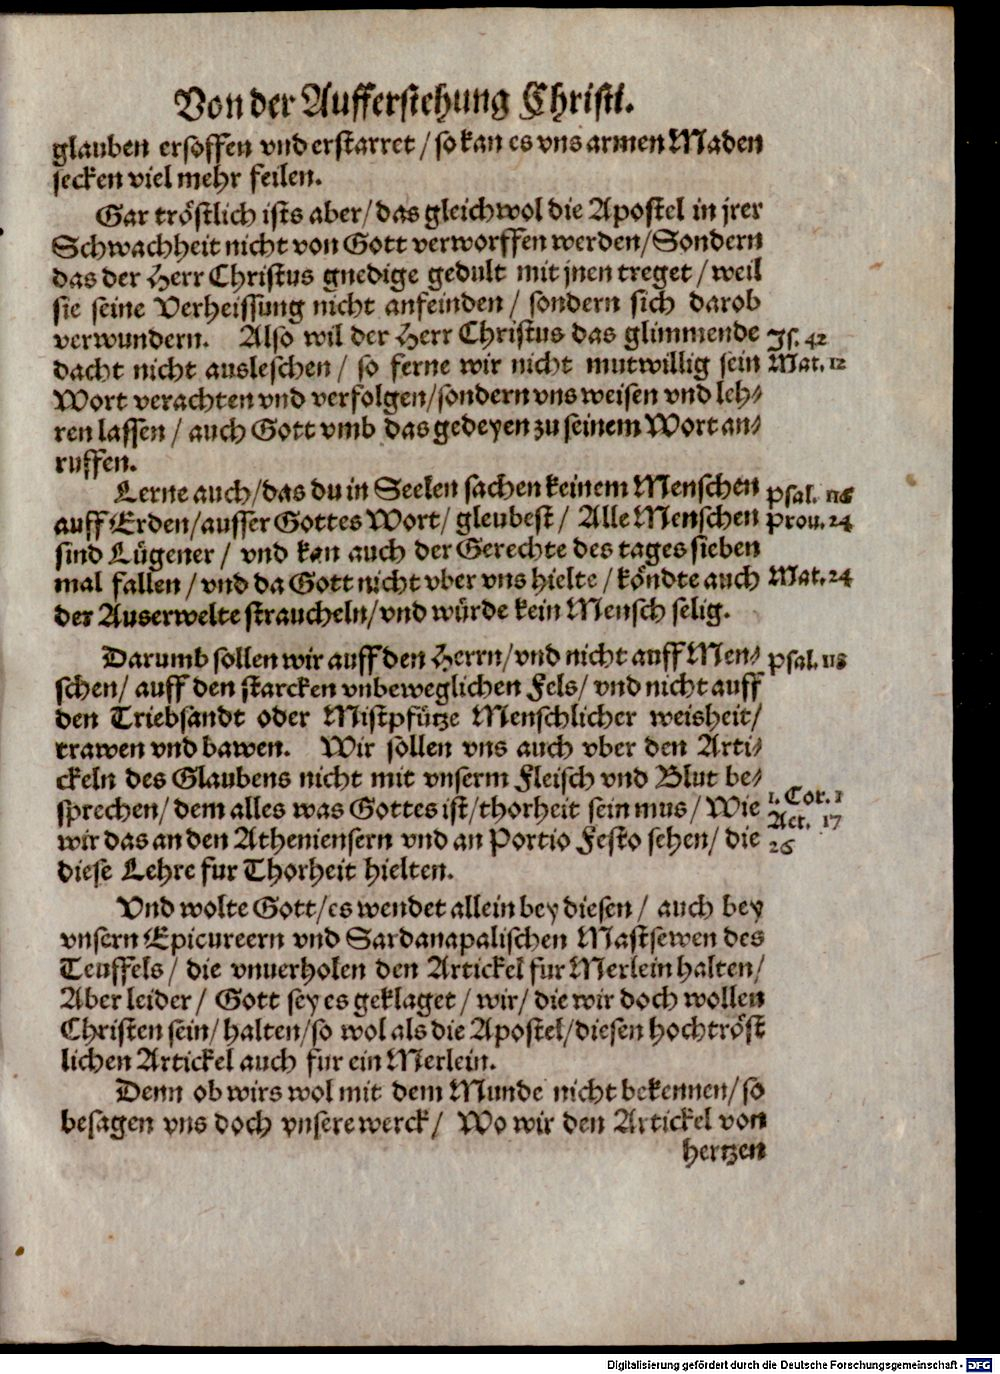 Von der Aufferstehung Christi.
glauben ersoffen vnd erstarret / so kan es vns armen Maden
secken viel mehr feilen.
Gar tröstlich ists aber / das gleichwol die Apostel in jrer
Schwachheit nicht von Gott verworffen werden / Sondern
das der Herr Christus gnedige gedult mit jnen treget / weil
sie seine Verheissung nicht anfeinden / sondern sich darob
verwundern. Also wil der Herr Christus das glimmende Js. 42
dacht nicht ausleschen / so ferne wir nicht mutwillig sein Mat. 12
Wort verachten vnd verfolgen / sondern vns weisen vnd leh-
ren lassen / auch Gott vmb das gedeyen zu seinem Wort an-
ruffen.
Lerne auch / das du in Seelen sachen keinem Menschen Psal. 116
auff Erden / ausser Gottes Wort / gleubest / Alle Menschen Prou. 24
sind Lügener / vnd kan auch der Gerechte des tages sieben
mal fallen / vnd da Gott nicht vber vns hielte / köndte auch Mat. 24
der Auserwelte straucheln / vnd würde kein Mensch selig.
Darumb sollen wir auff den Herrn / vnd nicht auff Men- Psal. 118
schen / auff den starcken vnbeweglichen Fels / vnd nicht auff
den Triebsandt oder Mistpfütze Menschlicher weisheit /
trawen vnd bawen. Wir sollen vns auch vber den Arti-
ckeln des Glaubens nicht mit vnserm Fleisch vnd Blut be-
sprechen / dem alles was Gottes ist / thorheit sein mus / Wie 1. Cor. 1
wir das an den Atheniensern vnd an Portio Festo sehen / die Act. 17
diese Lehre fur Thorheit hielten. 26
Vnd wolte Gott / es wendet allein bey diesen / auch bey
vnsern Epicureern vnd Sardanapalischen Mastsewen des
Teuffels / die vnuerholen den Artickel fur Merlein halten /
Aber leider / Gott sey es geklaget / wir / die wir doch wollen
Christen sein / halten / so wol als die Apostel / diesen hochtröst
lichen Artickel auch fur ein Merlein.
Denn ob wirs wol mit dem Munde nicht bekennen / so
besagen vns doch vnsere werck / Wo wir den Artickel von
hertzen
Digitalisierung gefördert durch die Deutsche Forschungsgemeinschaft - DFG